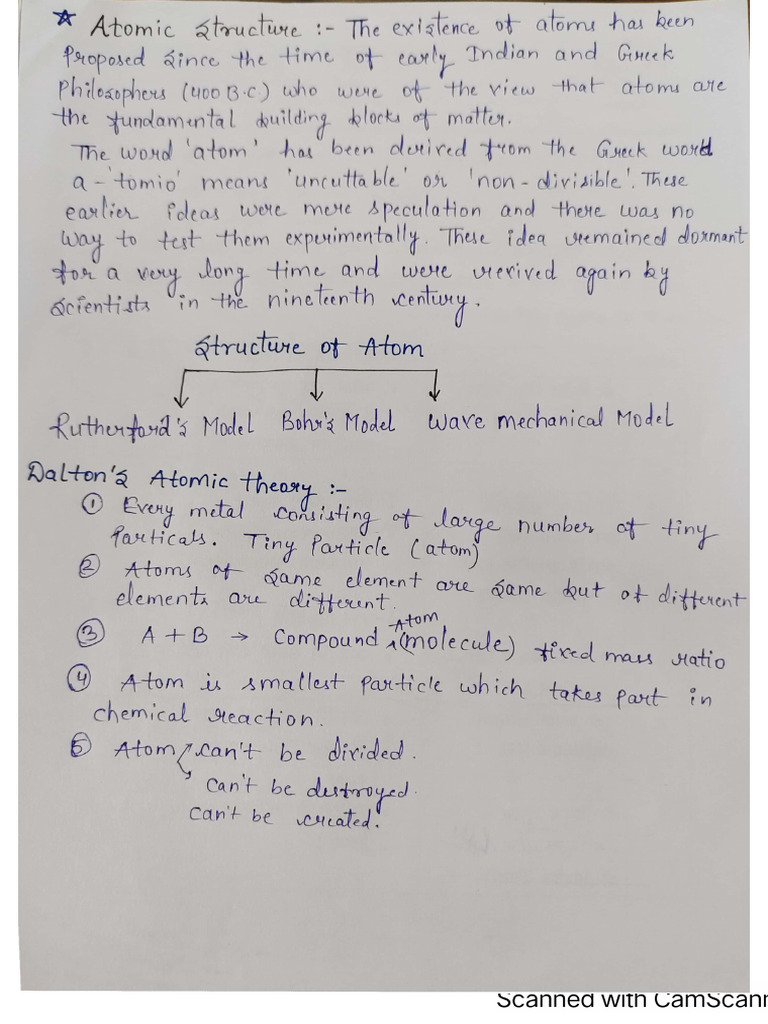 ☆ Atomic Structure :- The existence of atoms has been
Proposed Since the time of early Indian and Greek
Philosophers (400 B.C.) who were of the view that atoms are
the fundamental building blocks of matter.
The word 'atom' has been derived from the Greek word
a-'tomio' means 'uncuttable' or 'non-divisible'. These
earlier ideas were mere speculation and there was no
way to test them experimentally. These idea remained dormant
for a very long time and were revived again by
Scientists in the nineteenth century.
Structure of Atom
Rutherford's Model Bohr's Model Wave mechanical Model
Dalton's Atomic theory :-
① Every metal consisting of large number of tiny
Particals. Tiny Particle (atom)
② Atoms of same element are same but of different
elements are different.
Atom
③ A + B → Compound (molecule) fixed mass ratio
④ Atom is smallest Particle which takes part in
chemical reaction.
⑤ Atom can't be divided.
can't be destroyed.
can't be created.
Scanned with CamScann